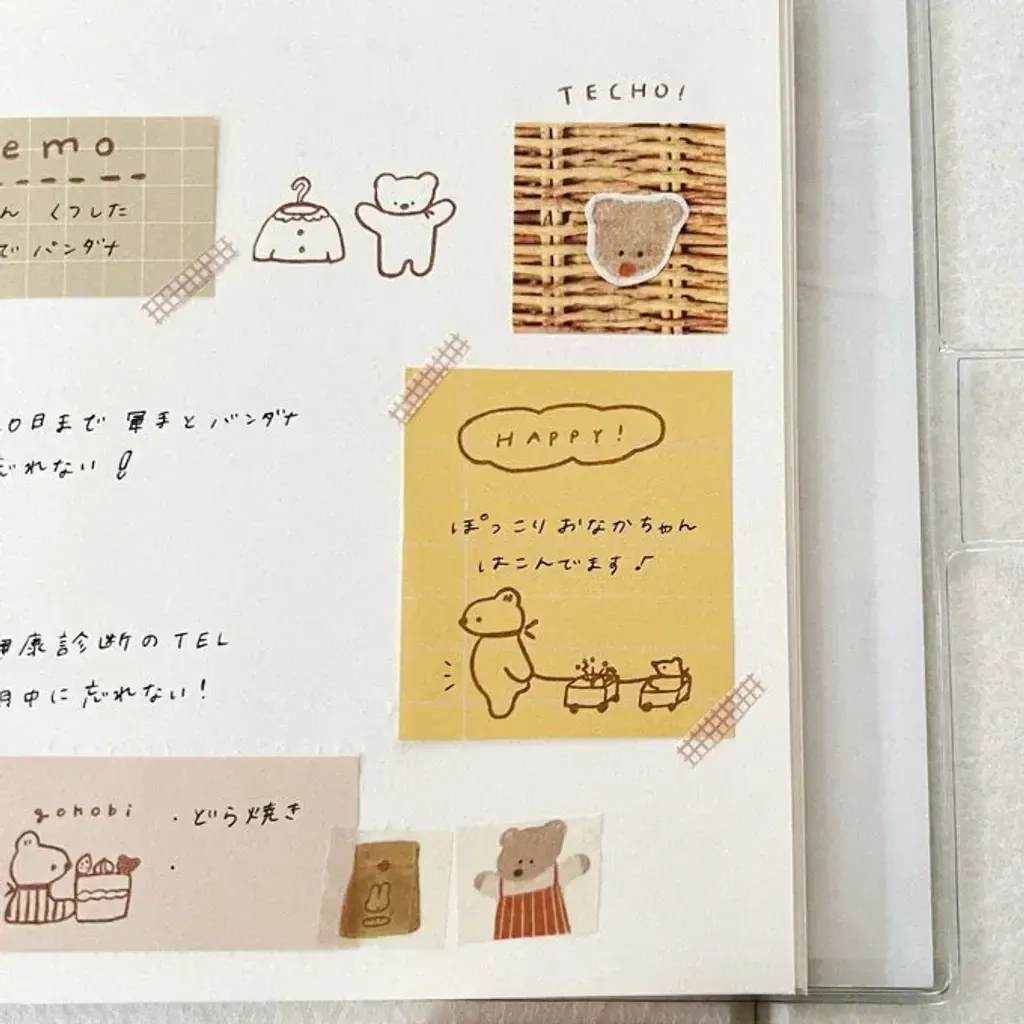 TECHO!
emo
ん くつした
で バンダナ
0日まで 軍手とバンダナ
忘れない!
HAPPY!
ぽっこりおなかちゃん
はこんでます♪
康診断のTEL
月中に忘れない!
gohobi
・どら焼き
・